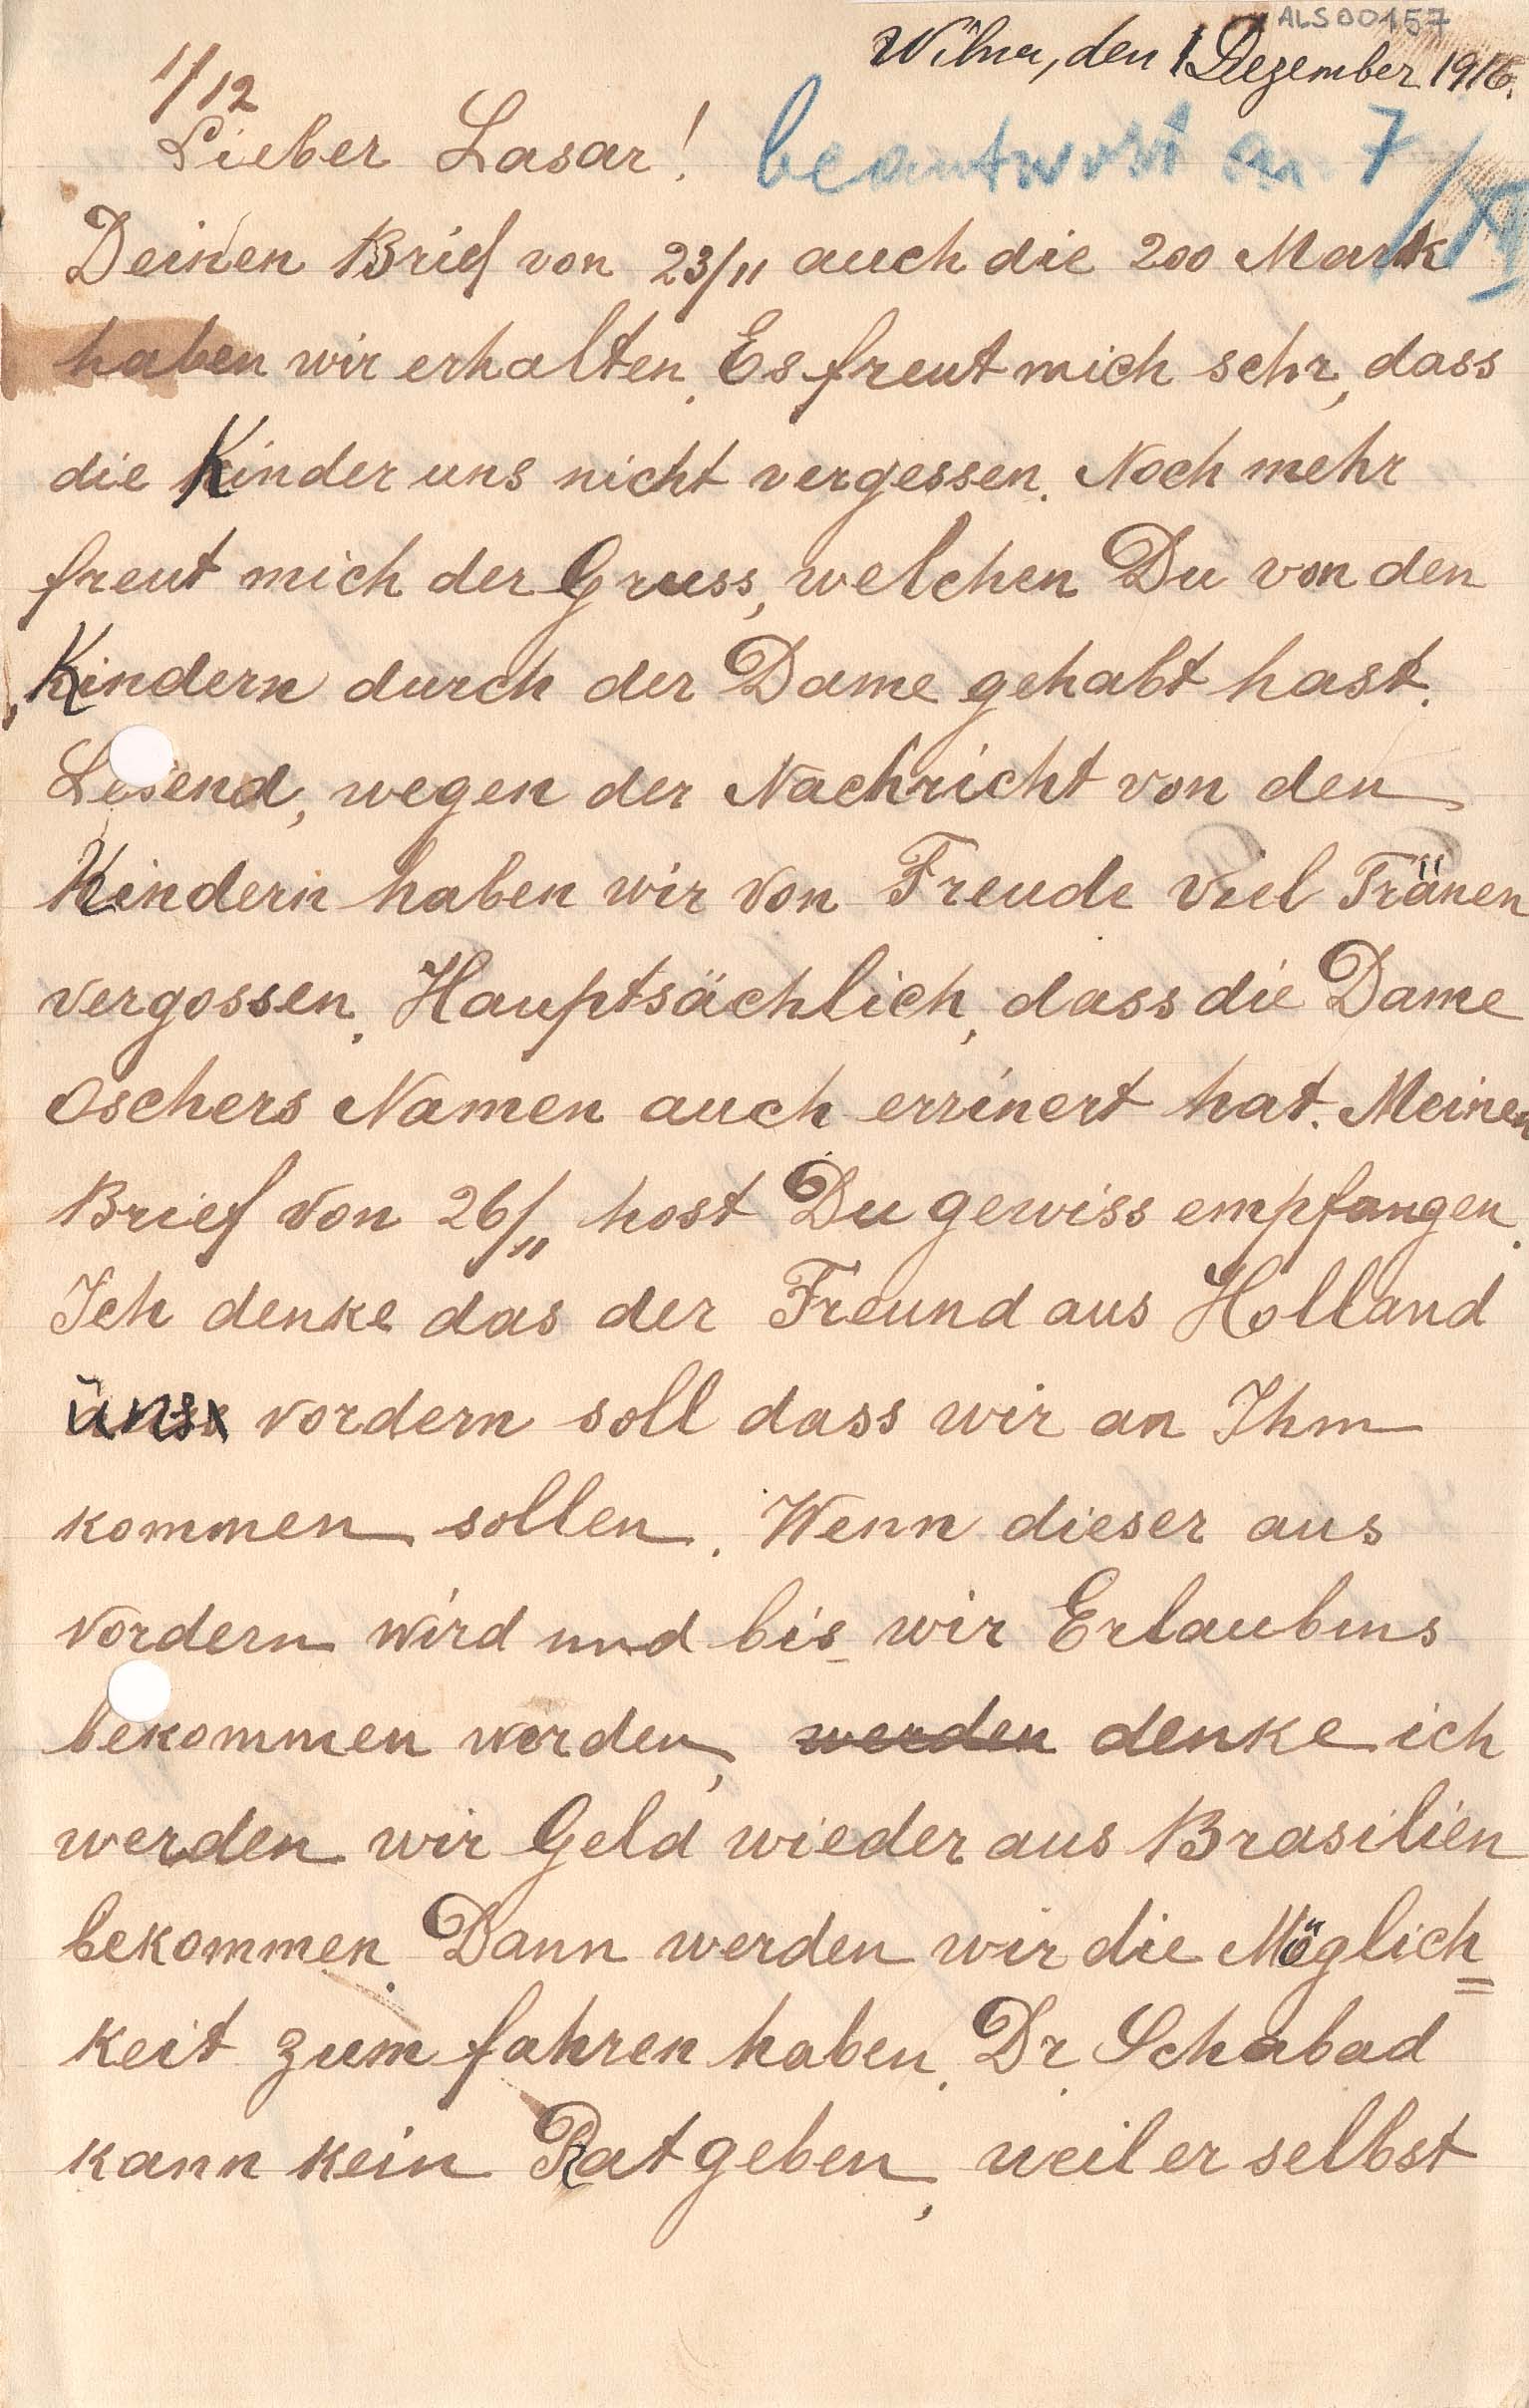 ALS00157
Wilna, den 1 Dezember 1916.
1/12
Lieber Lasar!
beantwort am 7/XII
Deinen Brief von 23/11 auch die 200 Mark
haben wir erhalten. Es freut mich sehr, dass
die Kinder uns nicht vergessen. Noch mehr
freut mich der Gruss, welchen Du von den
Kindern durch der Dame gehabt hast.
Lesend, wegen der Nachricht von den
Kindern haben wir von Freude viel Tränen
vergossen. Hauptsächlich, dass die Dame
Oschers Namen auch errinert hat. Meinen
Brief von 26/11 host Du gewiss empfangen.
Ich denke das der Freund aus Holland
uns vordern soll dass wir an Ihm
kommen sollen. Wenn dieser aus
vordern wird und bis wir Erlaubnis
bekommen werden, werden denke ich
werden wir Geld wieder aus Brasilien
bekommen. Dann werden wir die Möglich=
keit zum fahren haben. Dr. Schabad
kann kein Rat geben, weil er selbst